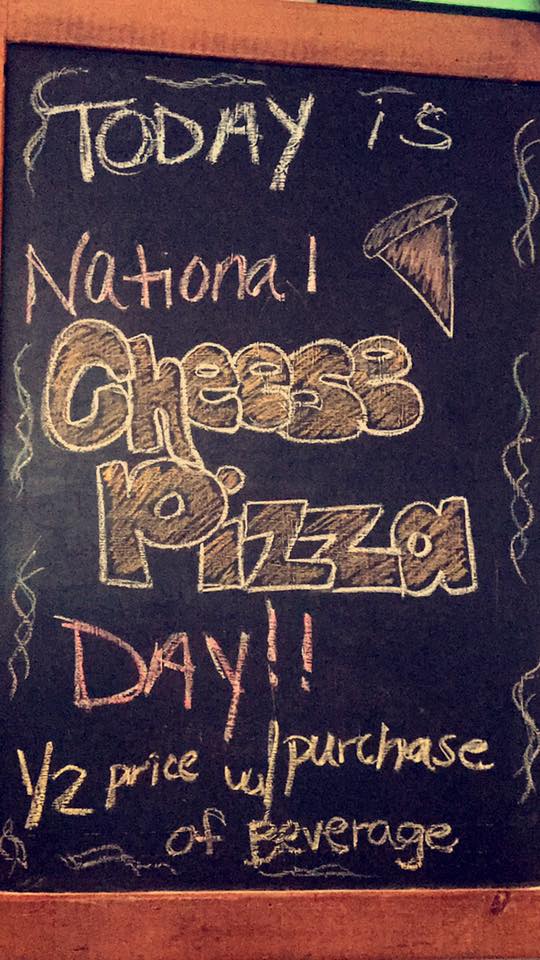 TODAY is
National
Cheese
Pizza
DAY!!
1/2 price w/ purchase
of Beverage